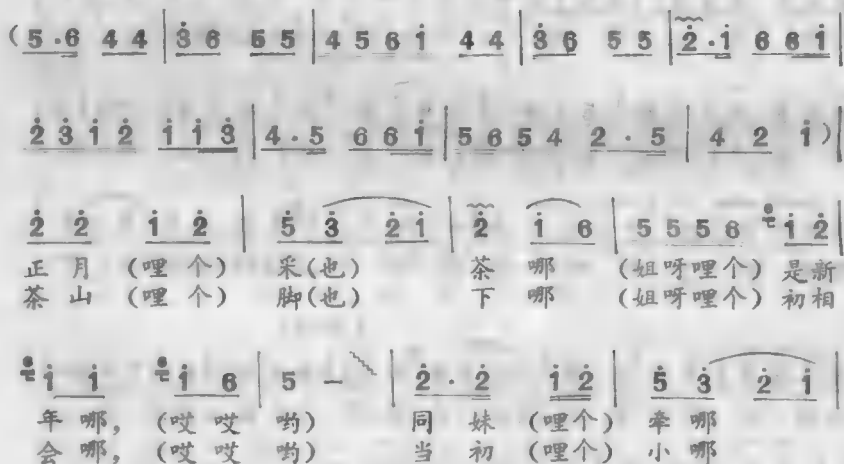 (5·6 44|3̇6 55|456i̇ 44|3̇6 55|2̇·i̇ 66i̇|
2̇3̇i̇2̇ i̇i̇3̇|4·5 66i̇|5654 2·5|4 2 i̇)|
2̇ 2̇ i̇ 2̇|5̇ 3̇ 2̇i̇|2̇ i̇ 6|5556 6 i̇2̇|
正月(哩个)采(也)茶哪(姐呀哩个)是新
茶山(哩个)脚(也)下哪(姐呀哩个)初相
6 i̇ i̇ 6 i̇ 6|5 -|2̇·2̇ i̇2̇|5̇ 3̇ 2̇ i̇|
年哪,(哎哎哟)同妹(哩个)牵哪
会哪,(哎哎哟)当初(哩个)小哪